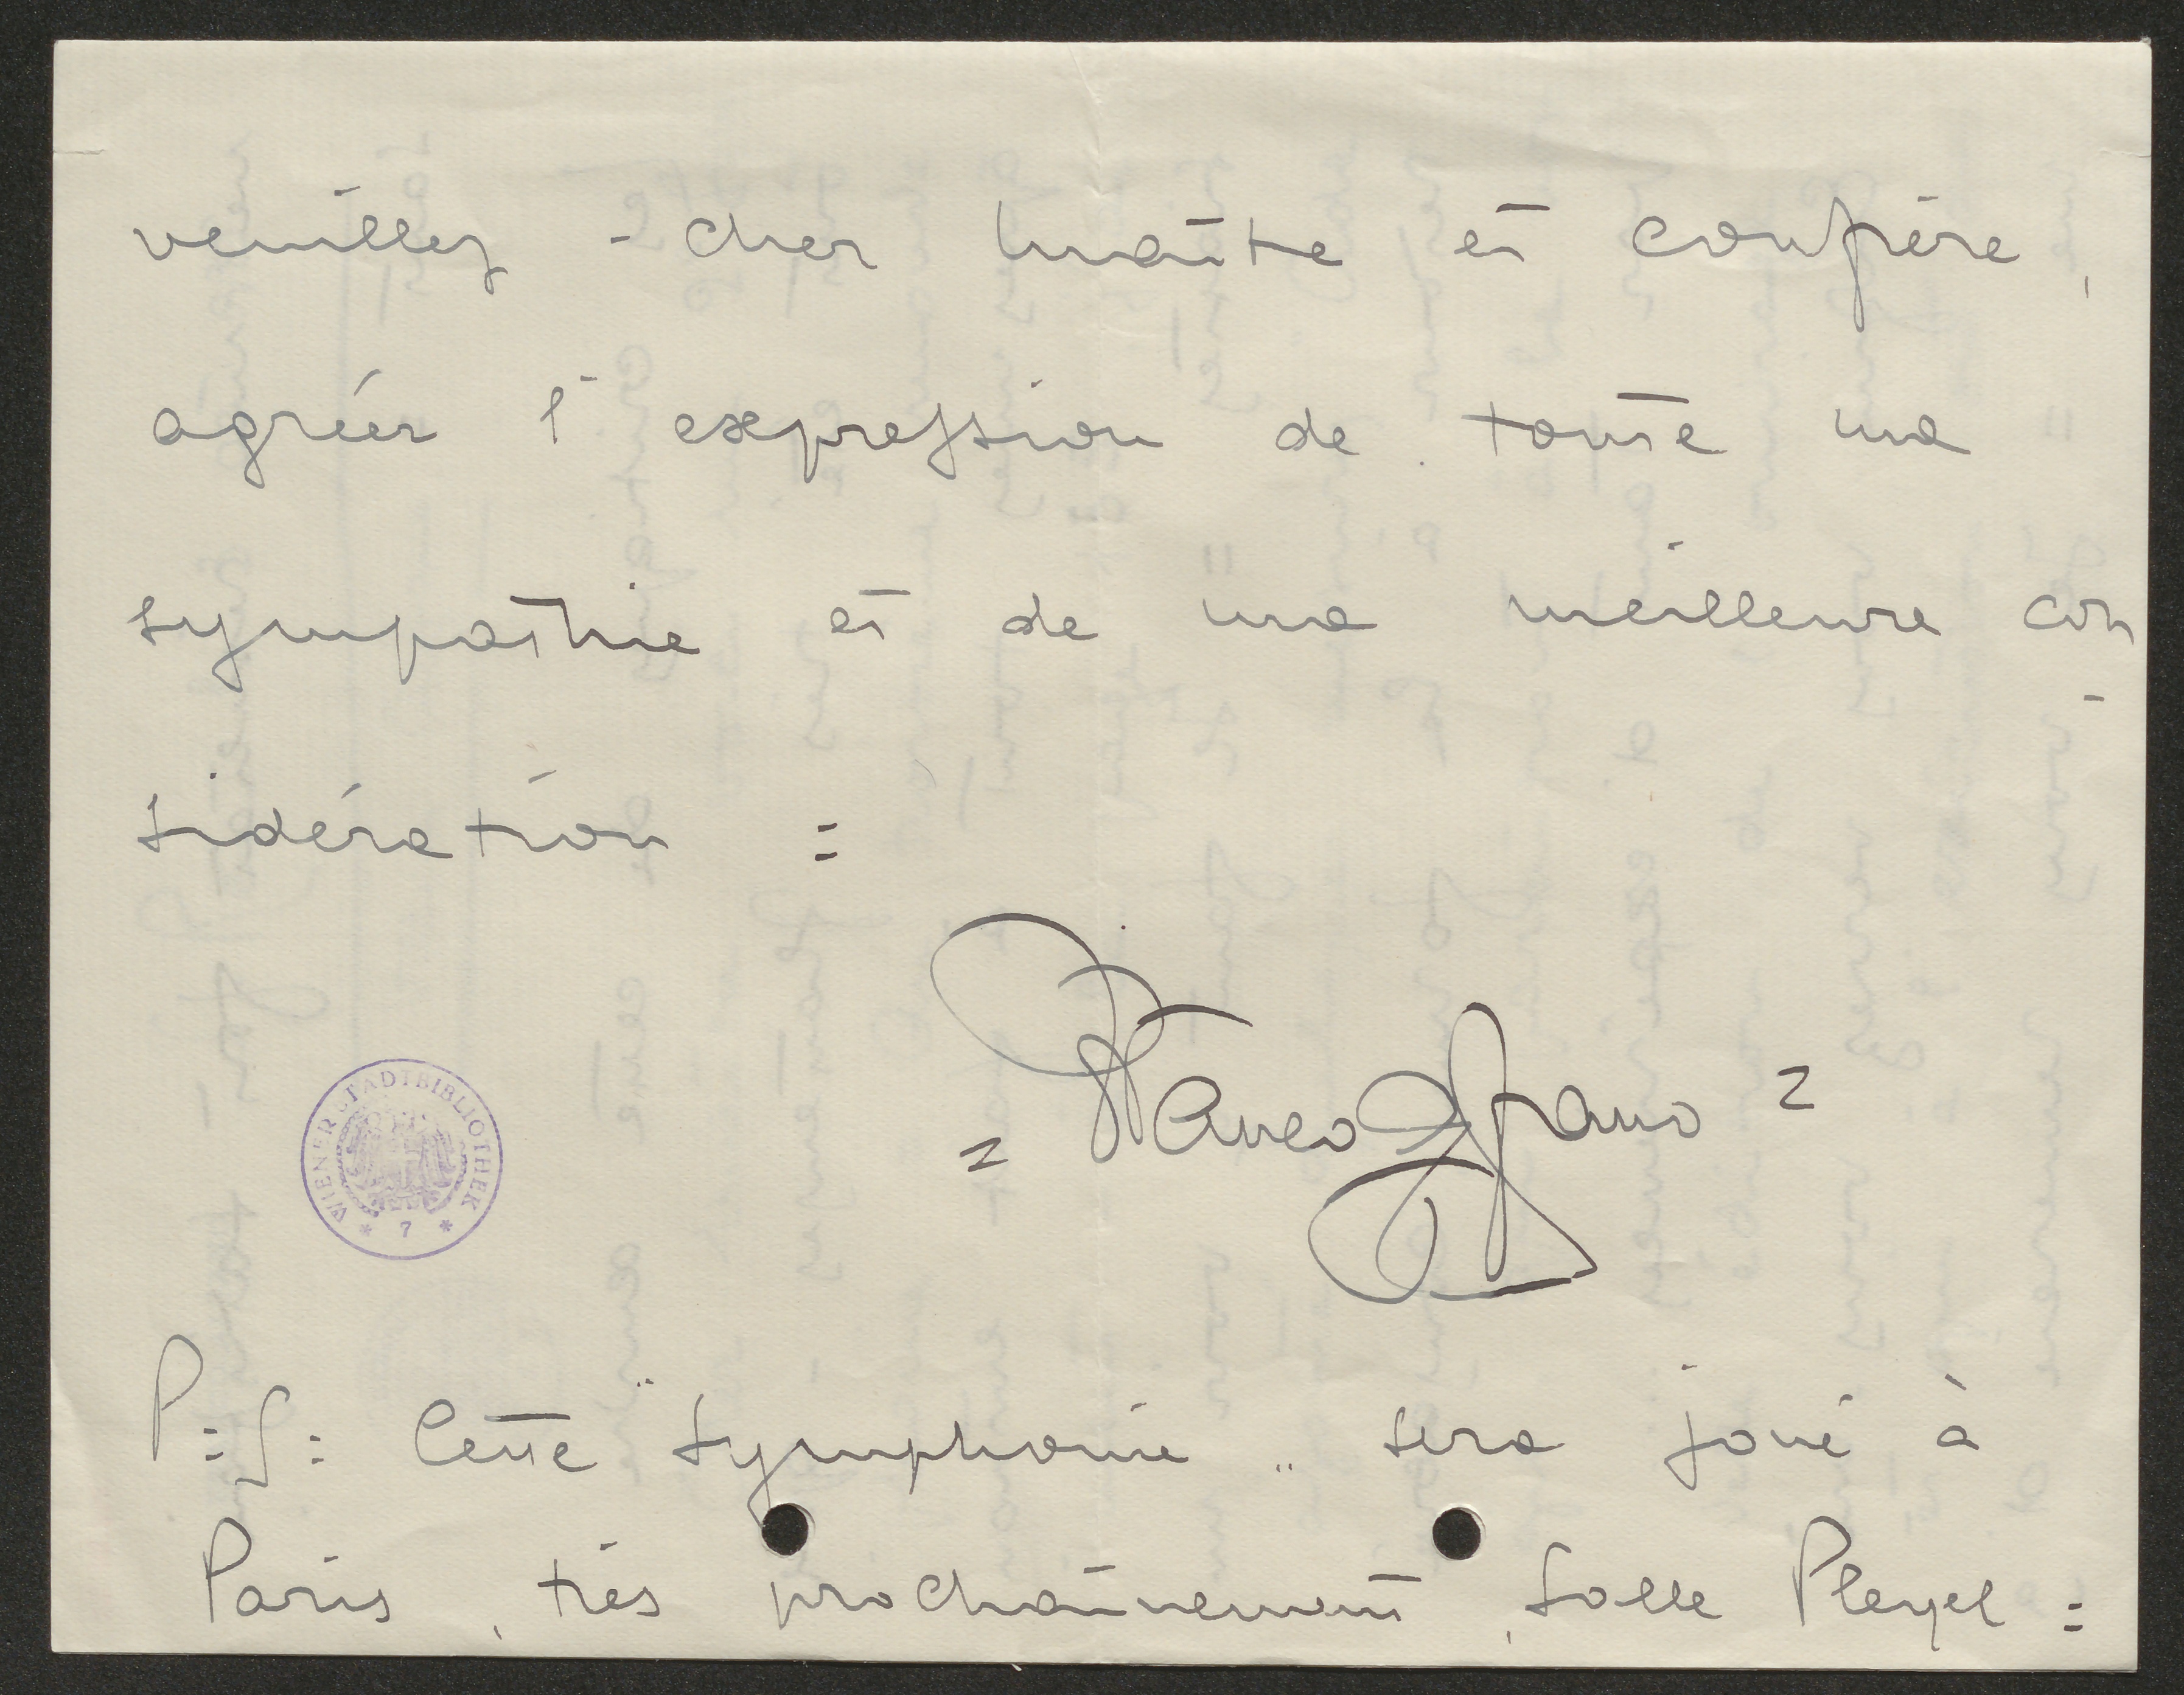 veuillez - cher Maître et confrère,
agréer l'expression de toute ma
sympathie et de ma meilleure con
-
sidération =
= Franco Alfano =
WIENER STADTBIBLIOTHEK
* 7 *
P=S= Cette "Symphonie" sera joué à
Paris, très prochainement, Salle Pleyel =